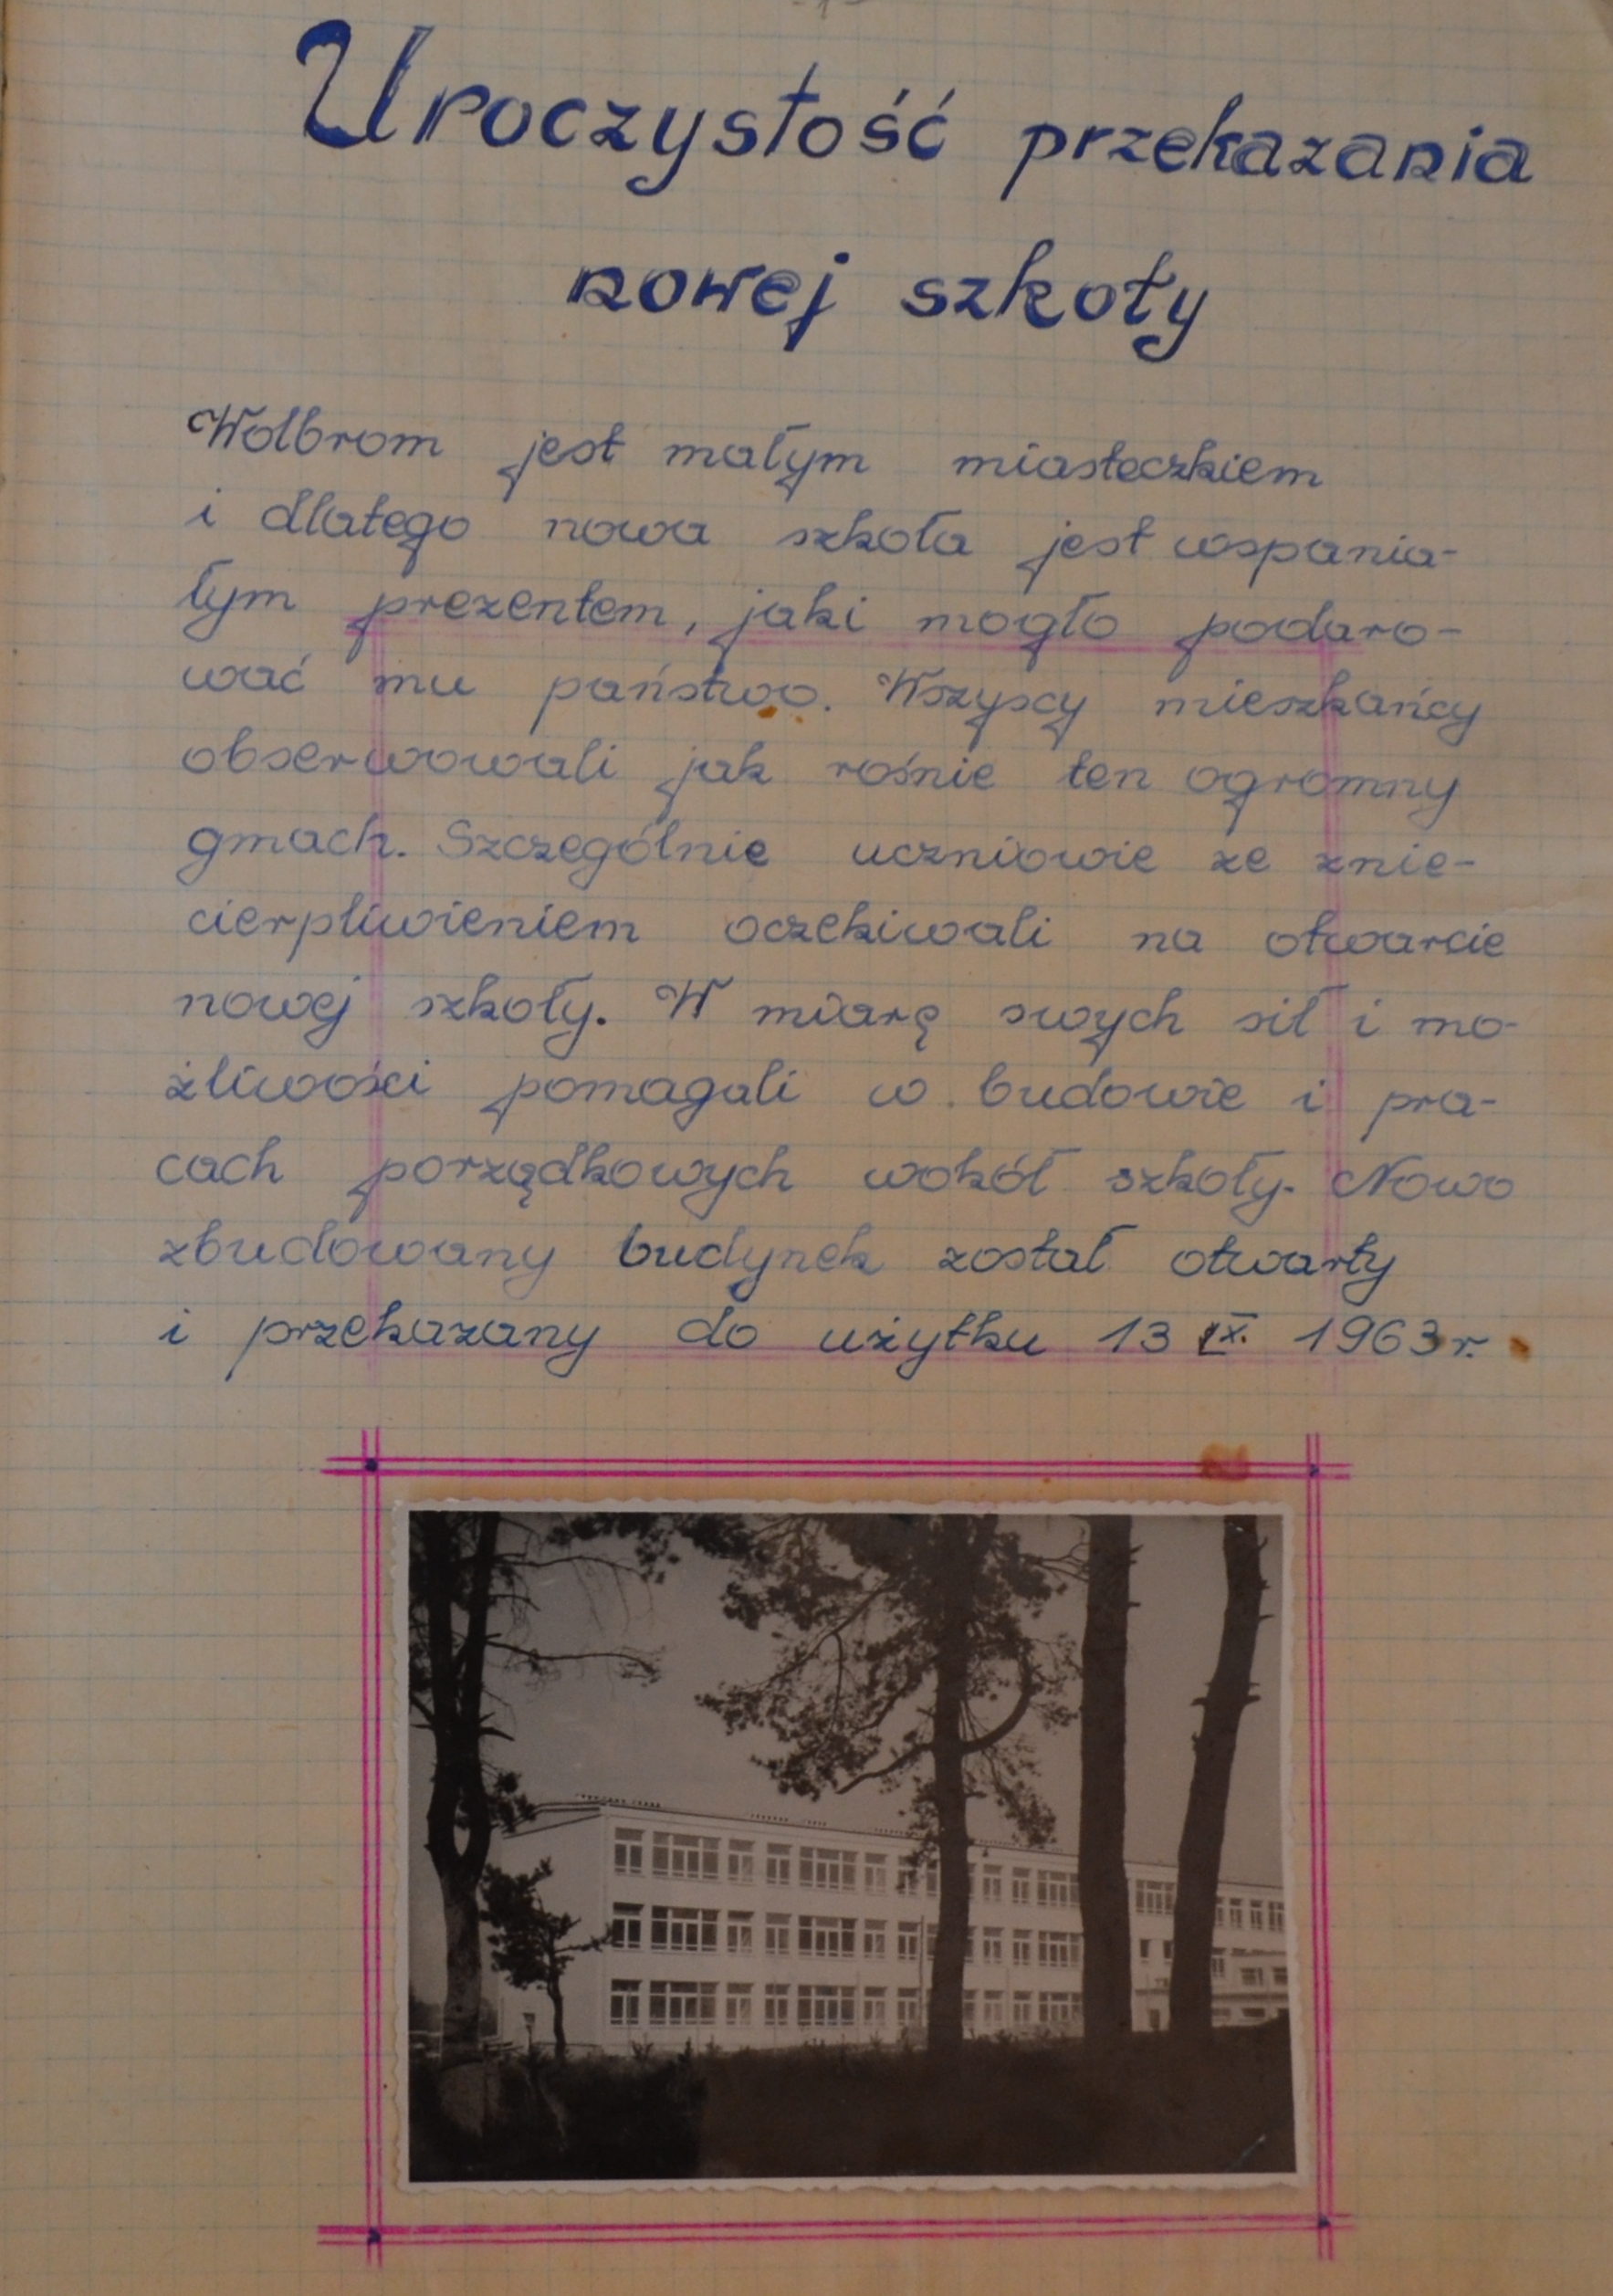 -1-
Uroczystość przekazania
nowej szkoły
Wolbrom jest małym miasteczkiem
i dlatego nowa szkoła jest wspania-
łym prezentem, jaki mogło podaro-
wać mu państwo. Wszyscy mieszkańcy
obserwowali jak rośnie ten ogromny
gmach. Szczególnie uczniowie ze znie-
cierpliwieniem oczekiwali na otwarcie
nowej szkoły. W miarę swych sił i mo-
żliwości pomagali w budowie i pra-
cach porządkowych wokół szkoły. Nowo
zbudowany budynek został otwarty
i przekazany do użytku 13 IX. 1963r.